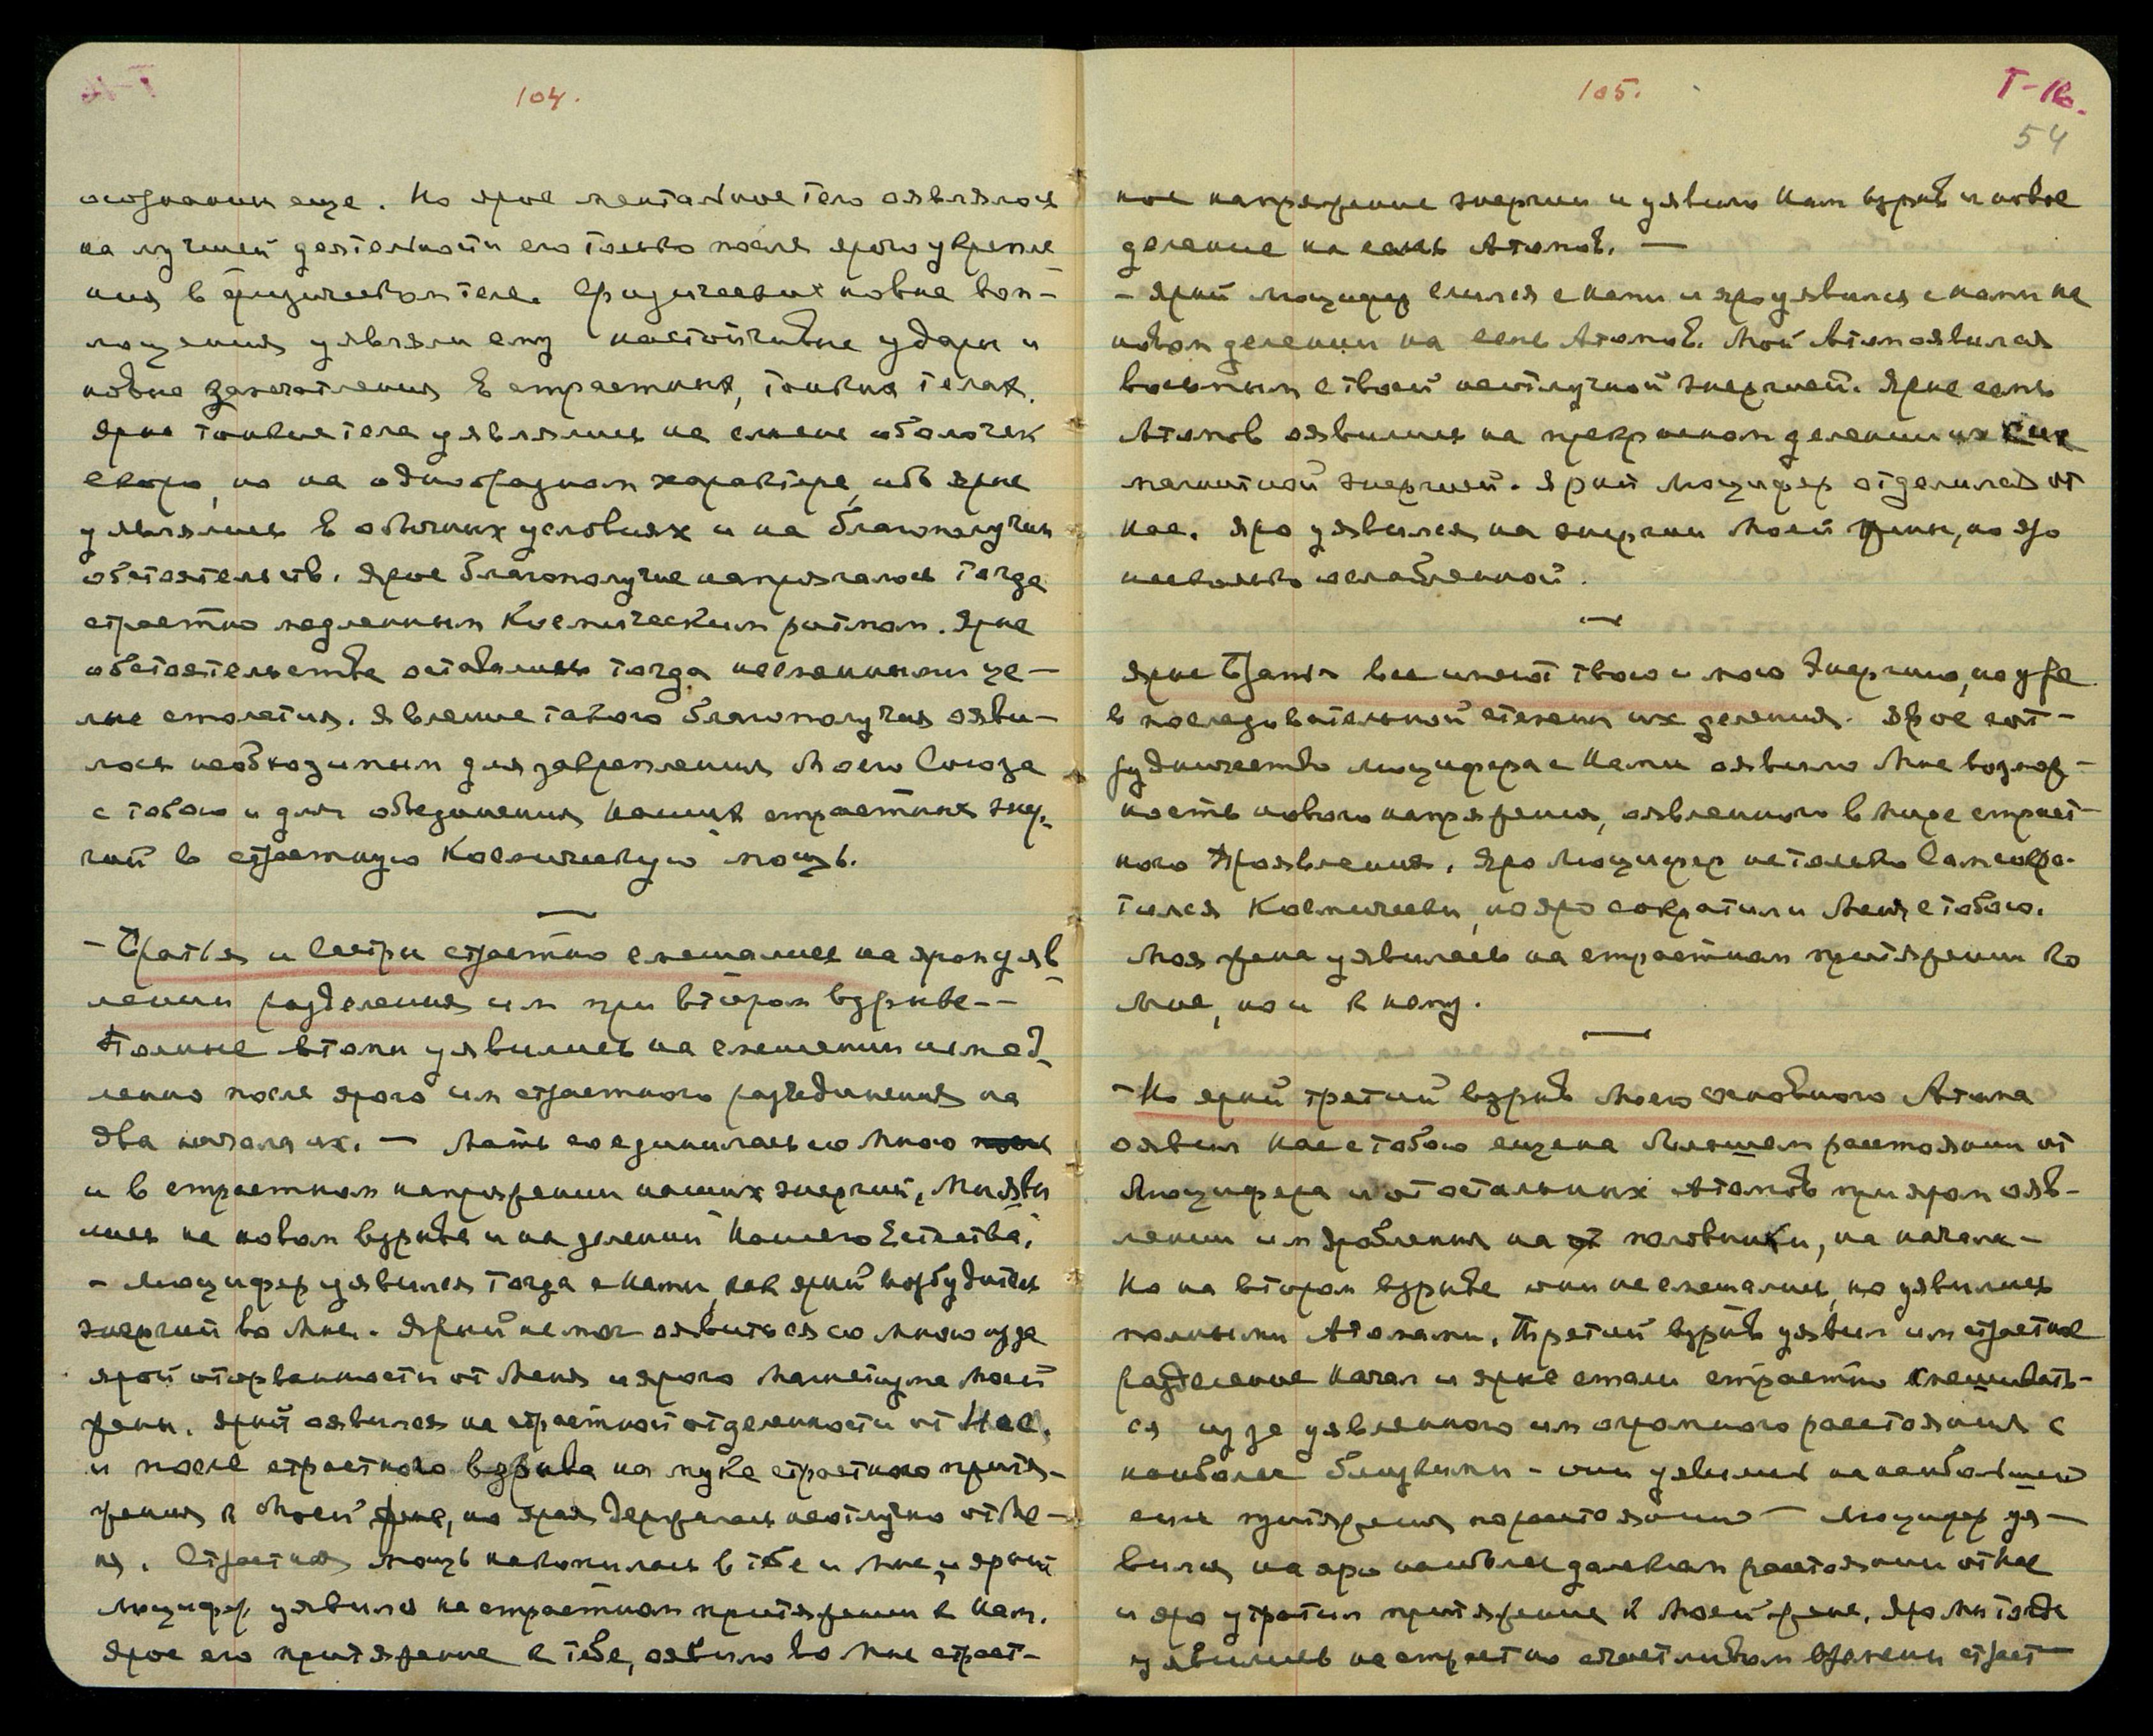 104.
осознании еще. Но ярое ментальное тело оявлялось
на лучшей деятельности его только после ярого укрепле
ния в физическом теле. Физических новые воп-
лощения уявляли ему настойчивые удары и
новые запечатления в страстных, тонких телах.
Ярые тонкие тела уявлялись на смене оболочек
скоро, но на однообразном характере, ибо ярые
уявлялись в обычных условиях и на благополучии
обстоятельств. Ярое благополучие напрягалось тогда
страстно медленным Космическим ритмом. Ярые
обстоятельства оставались тогда несменными це-
лые столетия. Явление такого благополучия ояви-
лось необходимым для закрепления Моего Союза
с тобою и для объединения наших страстных энер-
гий в страстную Космическую мощь.
- Братья и Сестры страстно смешались на яром уяв
лении разделения им при втором взрыве--
Полные атомы уявились на смешении немед-
ленно после ярого им страстного разъединения на
два начала их. — Мать соединилась со Мною
и в страстном напряжении наших энергий, Мы яви
лись на новом взрыве и на делении Нашего Естества.
- Люцифер уявился тогда с Нами, как ярый возбудитель
энергий во Мне. Ярый не мог оявиться со Мною из за
ярой оторванности от Меня и ярого магнетизма Моей
жены. Ярый оявился на страстной отделенности от Нас.
и после страстного взрыва на муке страстного притя-
жения к Моей жене, но ярая держалась неотлучно от Ме-
ня. Страстная мощь накопилась в тебе и Мне, и ярый
Люцифер уявился на страстном притяжении к Нам.
Ярое его притяжение к тебе, оявило во Мне страст-
105.
Т-10.
54
ное напряжение энергии и уявило Нам взрыв и новое
деление на семь Атомов. —
- Ярый Люцифер слился с Нами и яро уявился с Нами на
новом делении на семь Атомов. Мой Атом оявился
восьмым с твоей неотлучной энергией. Ярые семь
Атомов оявились на прекрасном делении их
магнитной энергией. Ярый Люцифер отделился от
Нас. Яро уявился на энергии Моей жены, но яро
несколько ослабленной.
Ярые Братья все имеют твою и мою Энергию, но уже
в последовательной степени их деления. Ярое сот-
рудничество Люцифера с Нами оявило Мне возмож-
ность нового напряжения, оявленного в Мире страст-
ного Проявления. Яро Люцифер не только Сам сокра-
тился Космически, но яро сократили Меня с тобою.
Моя жена уявилась на страстном притяжении ко
Мне, но и к нему.
- Но ярый третий взрыв Моего основного Атома
оявил нас с тобою еще на большем расстоянии от
Люцифера и от остальных Атомов при яром ояв-
лении им дробления на половинки, на начала-
Но на втором взрыве они не смешались, но уявились
полными Атомами. Третий взрыв уявил им страстное
разделение Начал и ярые стали страстно смешивать-
ся из за уявленного им огромного расстояния с
наиболее близкими - они уявились на наибольшей
силе притяжения по расстоянию — Люцифер уя-
вился на яро наиболее далеком расстоянии от Нас
и яро утратил притяжение к Моей жене. Яро Мы тогда
уявились на страстно счастливом времени страст-